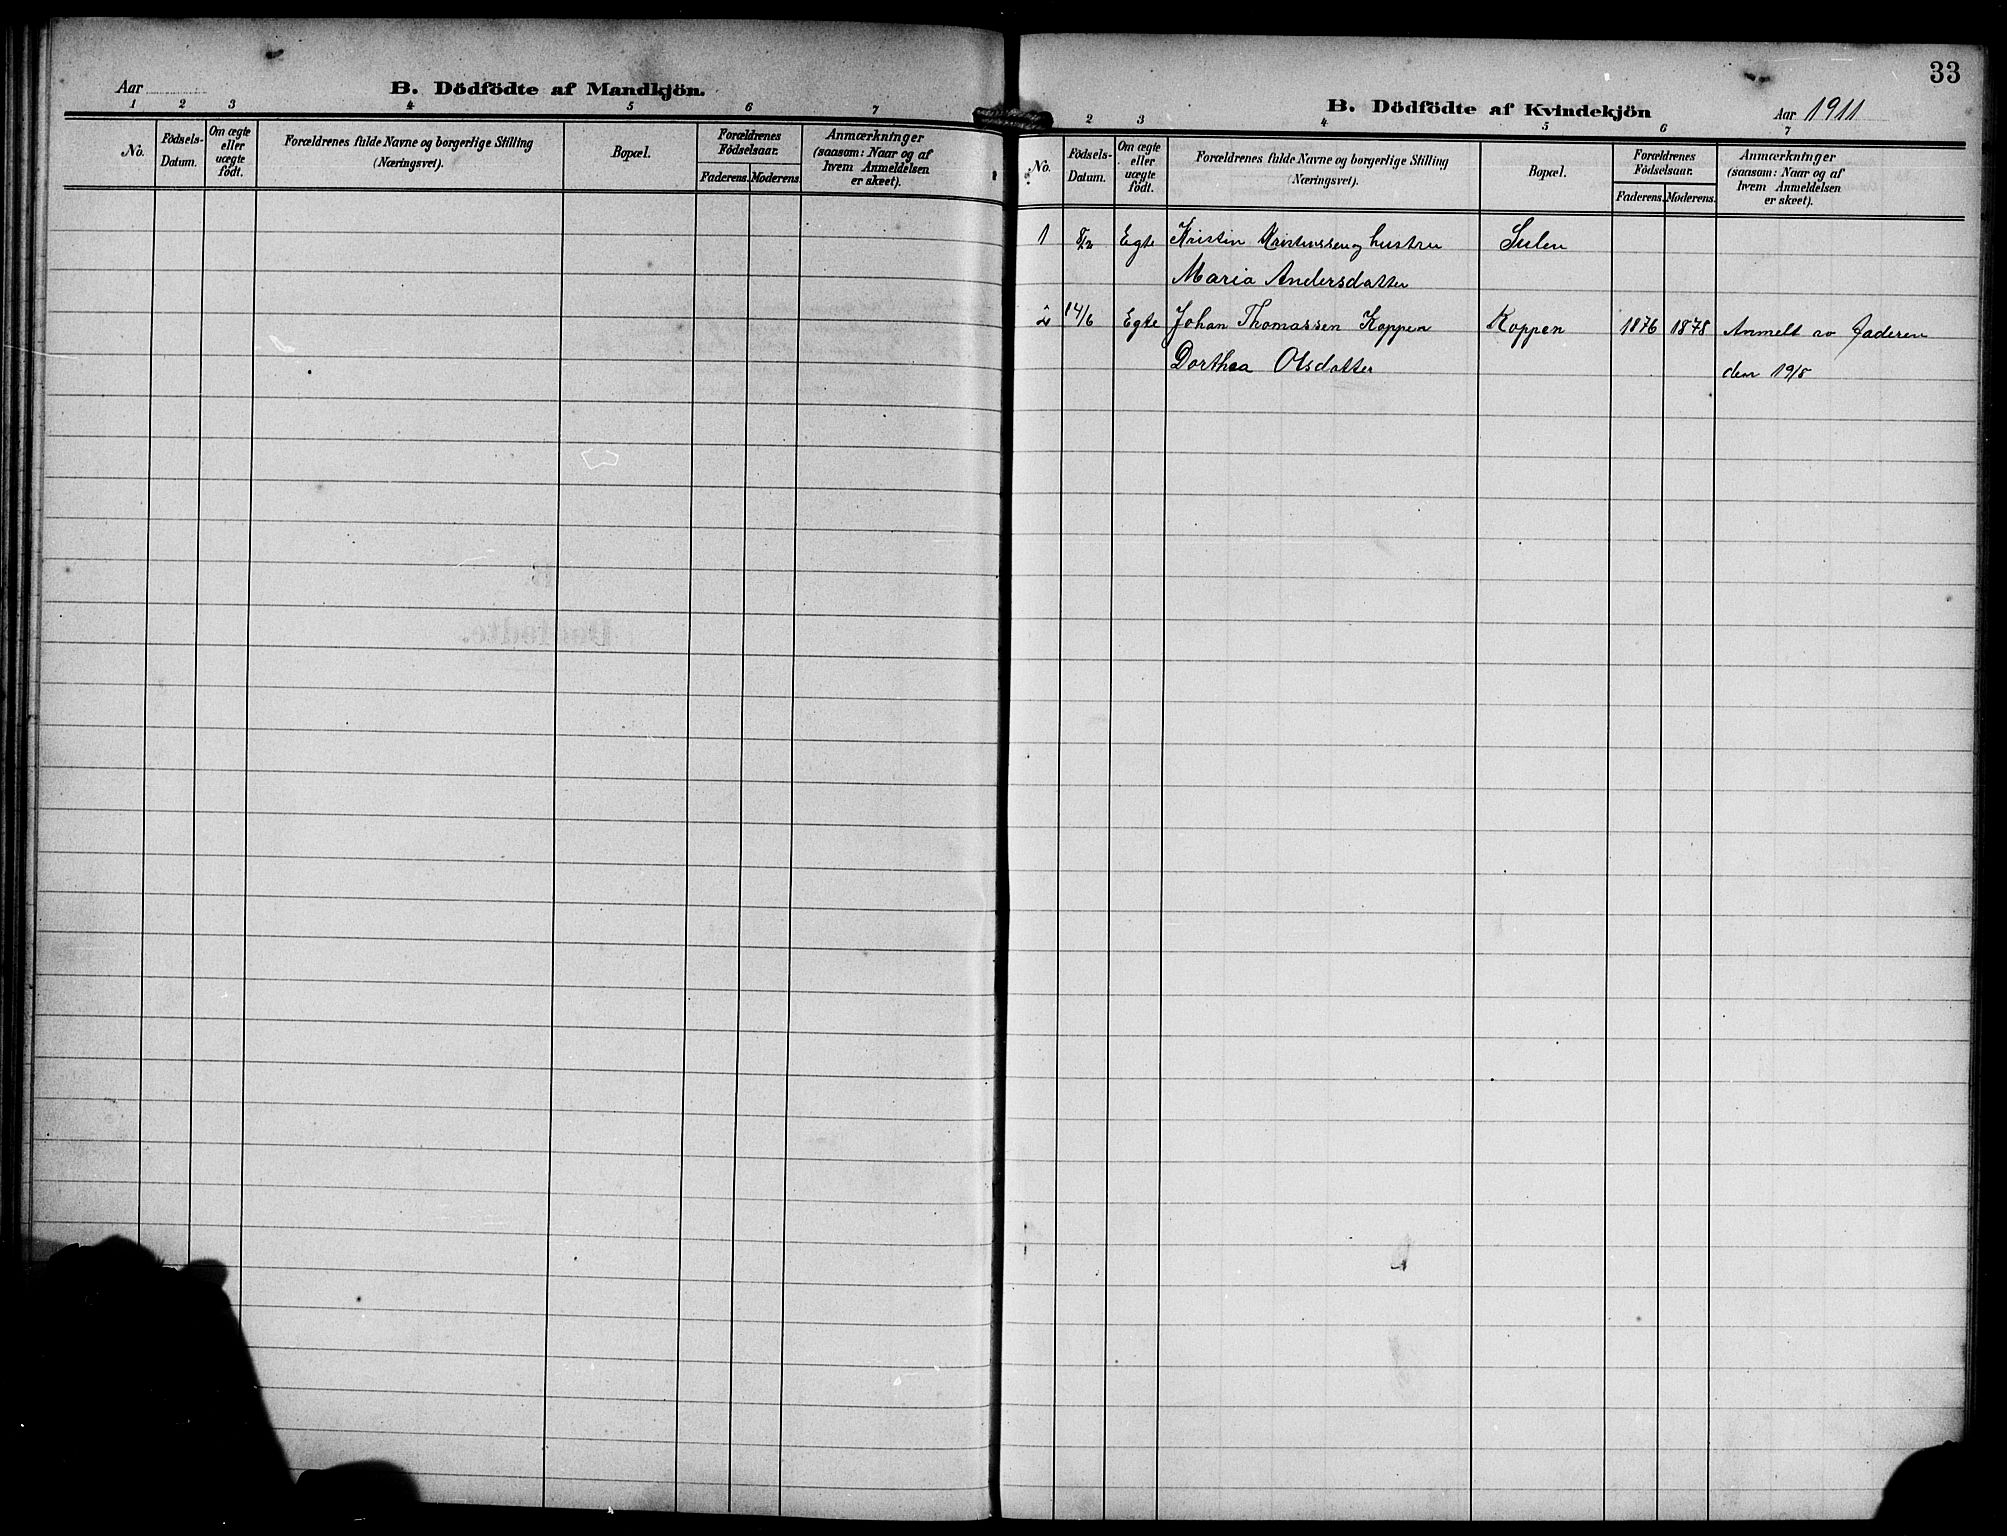 Aar
B. Dödfödte af Mandkjön.
1 2 3 4 5 6 7
No.
Födsels-
Datum.
Om ægte
eller
uægte
födt.
Forældrenes fulde Navne og borgerlige Stilling
(Næringsvet).
Bopæl.
Forældrenes
Födselsaar.
Faderens. Moderens.
Anmærkninger
(saasom: Naar og af
hvem Anmeldelsen
er skeet).
33
B. Dödfödte af Kvindekjön
Aar 1911
2 3 4 5 6 7
No.
Födsels-
Datum.
Om ægte
eller
uægte
födt.
Forældrenes fulde Navne og borgerlige Stilling
(Næringsvet).
Bopæl.
Forældrenes
Födselsaar.
Faderens. Moderens.
Anmærkninger
(saasom: Naar og af
hvem Anmeldelsen
er skeet).
1 Egte Kristin Kristenssen og hustru Sulen
Maria Andersdatter
2 14/6 Egte Johan Thomassen Koppen Koppen 1876 1878 Anmelt av Faderen
Dorthea Olsdatter den